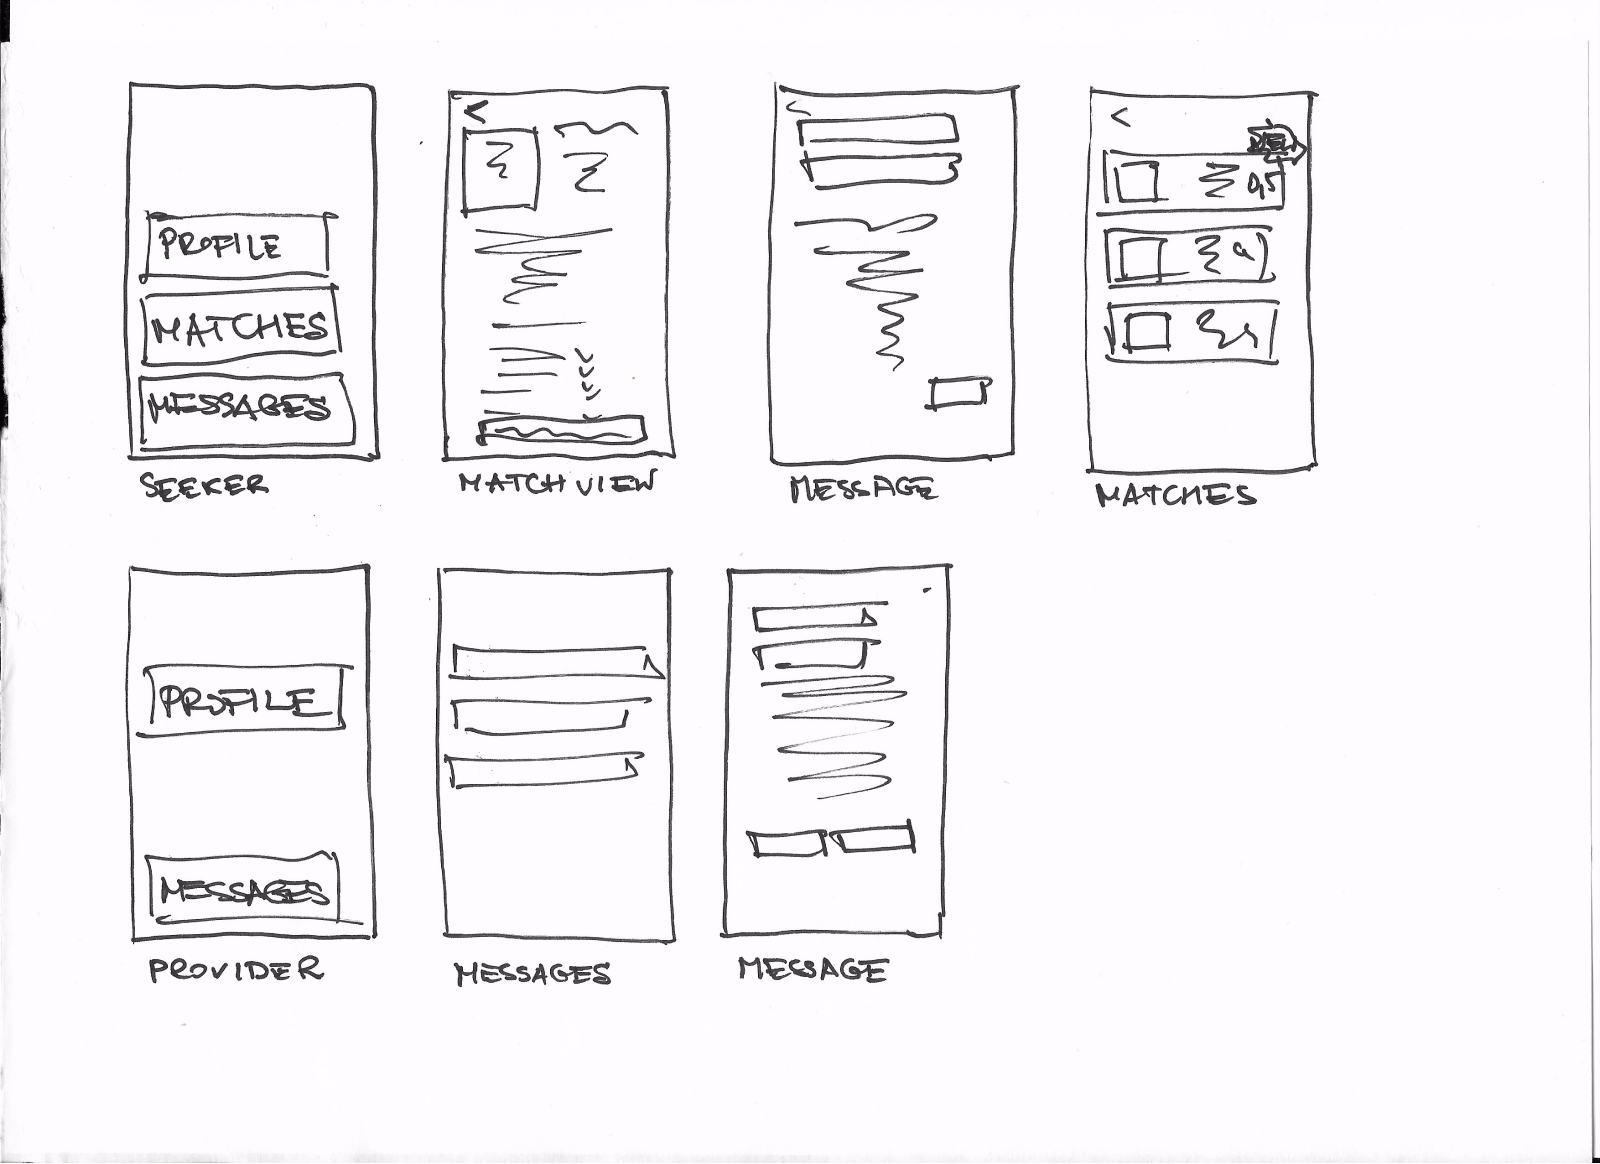 PROFILE
MATCHES
MESSAGES
SEEKER
MATCH VIEW
MESSAGE
0,5
MATCHES
PROFILE
MESSAGES
PROVIDER
MESSAGES
MESSAGE